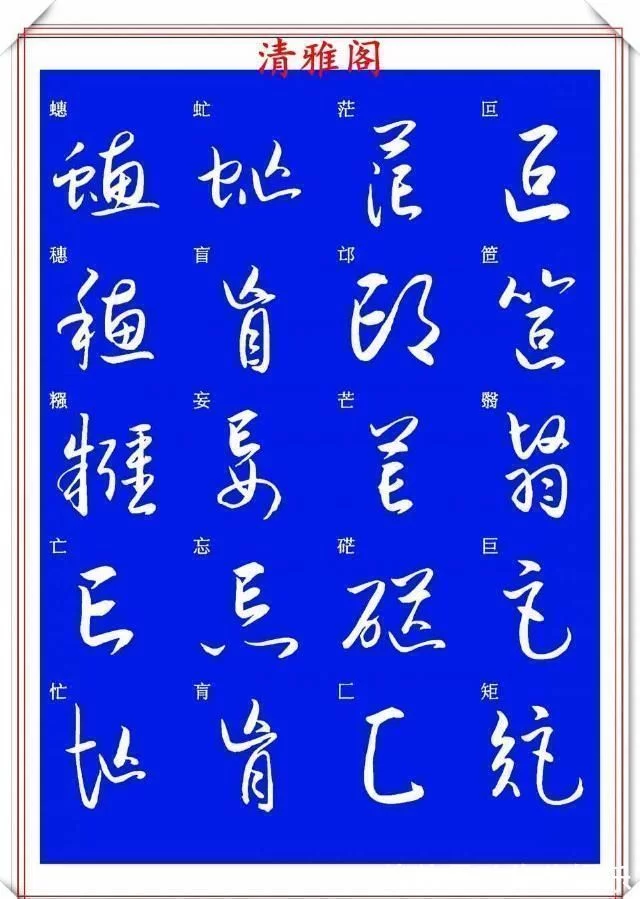 清雅阁
蟪 虻 茫 叵
穗 盲 邙 笸
糨 妄 芒 翳
亡 忘 硭 巨
忙 肓 匚 矩